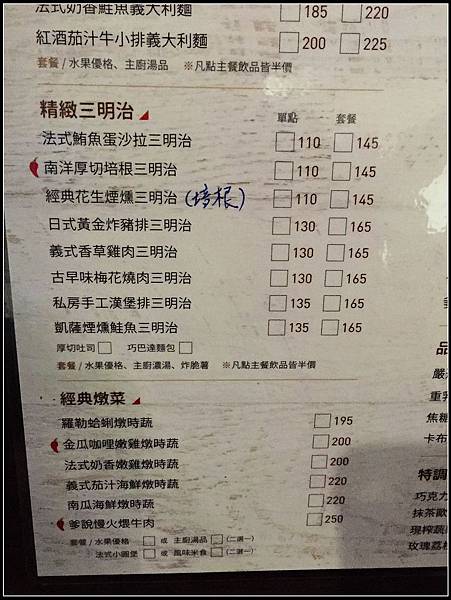 法式奶香鮭魚義大利麵 □185 □220
紅酒茄汁牛小排義大利麵 □200 □225
套餐 / 水果優格、主廚湯品 ※凡點主餐飲品皆半價
精緻三明治 單點 套餐
法式鮪魚蛋沙拉三明治 □110 □145
南洋厚切培根三明治 □110 □145
經典花生煙燻三明治 (培根) □110 □145
日式黃金炸豬排三明治 □130 □165
義式香草雞肉三明治 □130 □165
古早味梅花燒肉三明治 □130 □165
私房手工漢堡排三明治 □135 □165
凱薩煙燻鮭魚三明治 □135 □165
厚切吐司 □ 巧巴達麵包 □
套餐 / 水果優格、主廚濃湯、炸脆薯 ※凡點主餐飲品皆半價
經典燉菜
羅勒蛤蜊燉時蔬 □195
金瓜咖哩嫩雞燉時蔬 □200
法式奶香嫩雞燉時蔬 □200
義式茄汁海鮮燉時蔬 □220
南瓜海鮮燉時蔬 □220
爹說慢火煨牛肉 □250
套餐 / 水果優格 □ 或 主廚湯品 □ (二選一)
法式小圓堡 □ 或 風味米食 □ (二選一)
品
嚴
重乳
焦糖
卡布
特調
巧克力
抹茶歐
現榨蔬
玫瑰荔枝